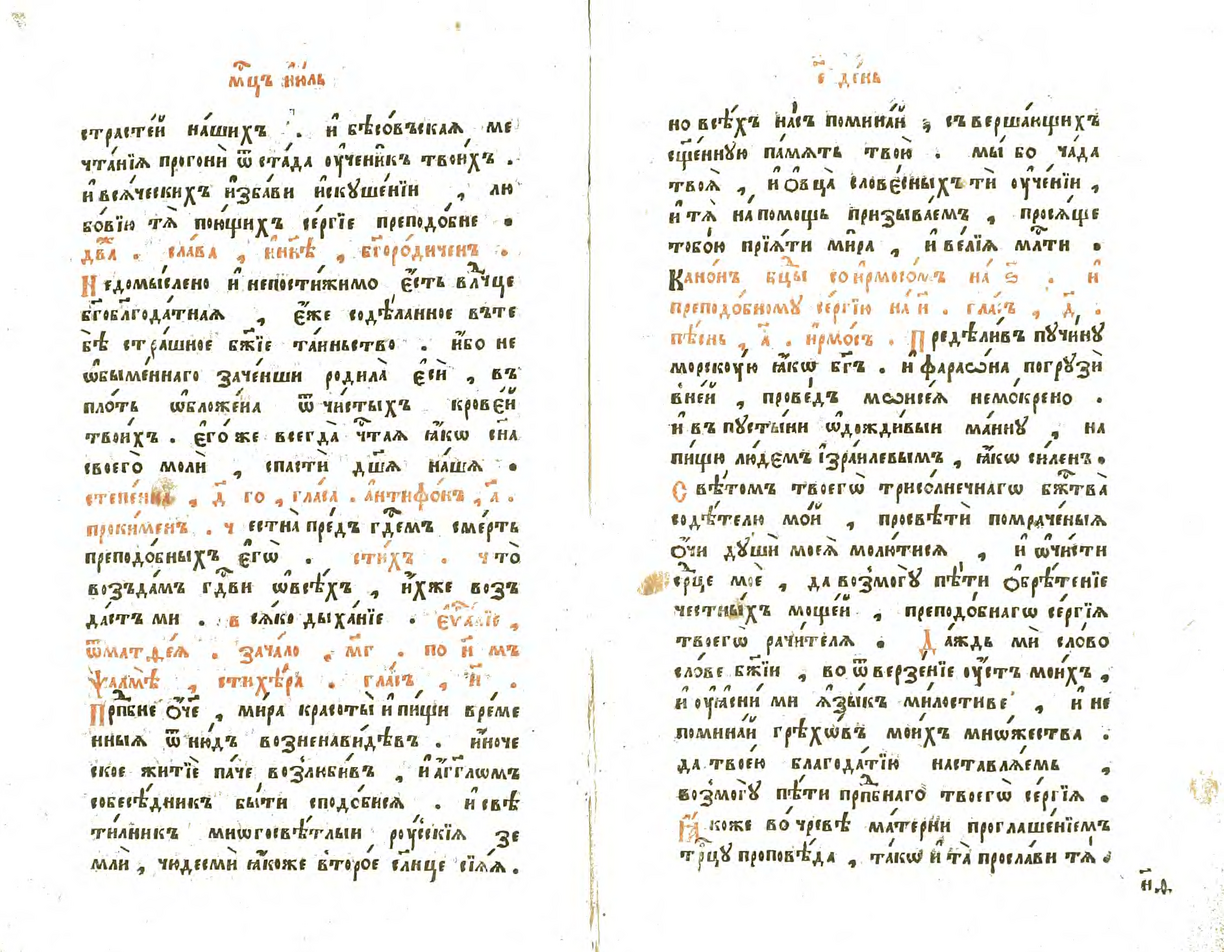 мц҃ъ і҆ю́ль
страсте́й на́шихъ . и҆ бѣсо́вьскаꙗ ме
чта́нїꙗ прогонѝ ѿ ста́да оу҆чени́къ твои́хъ .
и҆ всѧ́ческихъ и҆зба́ви и҆скꙋше́нїи , лю
бо́вїю тѧ̀ пою́щихъ се́ргїе преподо́бне .
два . сла́ва , и҆ ны́нѣ , бг҃оро́диченъ .
Недомы́слено и҆ непости́жимо є҆́сть влⷣчце
бг҃облгода́тнаѧ , є҆́же содѣ́ланное въ те
бѣ̀ стра́шное бж҃їе та́иньство . и҆́бо не
ѡ҆бы́меннаго заче́нши родила̀ є҆сѝ , въ
пло́ть ѡ҆бложе́на ѿ чи́стыхъ крове́й
твои́хъ . є҆го́же всегда̀ чта́ѧ ꙗ҆́кѡ сн҃а
своего̀ молѝ , спастѝ дш҃а на́шѧ .
степе́нна , д҃ го , гла́са . а҆нтифо́нъ , а҃ .
проки́менъ . честна̀ пре́дъ гдⷭ҇емъ сме́рть
преподо́бныхъ є҆гѡ̀ . сти́хъ . что̀
возъда́мъ гдⷭ҇ви ѡ҆ всѣ́хъ , и҆́хже возъ
да́стъ ми . всѧ́ко дыха́нїе . є҆ѵⷢ҇лїе ,
ѿ матѳе́ѧ . зача́ло , мг҃ . по н҃ мъ
ѱалмѣ̀ , стихѣ́ра . гла́съ , и҃ .
Прпⷣбне ѻ҆́ч҃е , ми́ра красоты̀ и҆ пи́щи вре́ме
нныѧ ѿню́дъ возненави́дѣвъ . и҆́ноче
ское житїѐ па́че возлюби́въ , и҆ а҆́гг҃лѡмъ
собесѣ́дникъ бы́ти сподо́бисѧ . и҆ свѣ
ти́лникъ многосвѣ́тлыи роу́сскїѧ зе
млѝ , чюдесмѝ ꙗ҆́коже второ́е сл҃нце сїѧ́ѧ .
є҃ де́нь
но всѣ́хъ на́съ помина́й , съверша́ющихъ
сщ҃е́ннꙋю па́мѧть твою̀ . мы́ бо ча́да
твоѧ̀ , и҆ ѻ҆́вца слове́сныхъ тѝ оу҆че́нїи ,
и҆ тѧ̀ на по́мощь призыва́емъ , просѧ́ще
тобо́ю прїѧ́ти ми́ра , и҆ ве́лїѧ млⷭ҇ти .
Кано́нъ бц҃ы со і҆рмосо́мъ на ѕ҃ . и҆
преподо́бномꙋ се́ргїю на и҃ . гла́съ , д҃ .
пѣ́снь , а҃ . і҆рмо́съ . Предѣли́въ пꙋчи́нꙋ
морскоую ꙗ҆́кѡ бг҃ъ . и҆ фараѡ́на погрꙋзѝ
в не́й , прове́дъ мѡѵсе́ѧ немо́крено .
и҆ въ пꙋсты́ни ѡ҆дожди́выи ма́ннꙋ , на
пи́щю лю́демъ і҆зра́илевымъ , ꙗ҆́кѡ си́ленъ .
Свѣ́томъ твоегѡ̀ трисо́лнечнагѡ бж҃тва̀
содѣ́телю мо́й , просвѣтѝ помраче́ныѧ
ѻ҆́чи дꙋшѝ моеѧ̀ молю́тисѧ , и҆ ѡ҆чи́сти
срⷣце моѐ , да возмогꙋ̀ пѣ́ти ѻ҆брѣ́тенїе
честны́хъ моще́й , преподо́бнагѡ се́ргїѧ
твоегѡ̀ рачи́телѧ . Да́ждь мѝ сло́во
сло́ве бж҃їи , во ѿверзе́нїе оу҆́стъ мои́хъ ,
и҆ оу҆ѧсни́ ми ѧ҆зы́къ ми́лостиве , и҆ не
помина́й грѣхѡ́въ мои́хъ мно́жества .
да твое́ю благода́тїю наставлѧ́емь ,
возмогꙋ̀ пѣ́ти прпⷣбнаго твоегѡ̀ се́ргїѧ .
Ꙗ҆́коже во чре́вѣ ма́терни проглаше́нїемъ
трⷪ҇цꙋ проповѣ́да , та́кѡ и҆ та̀ просла́ви тѧ̀ .
н҃д